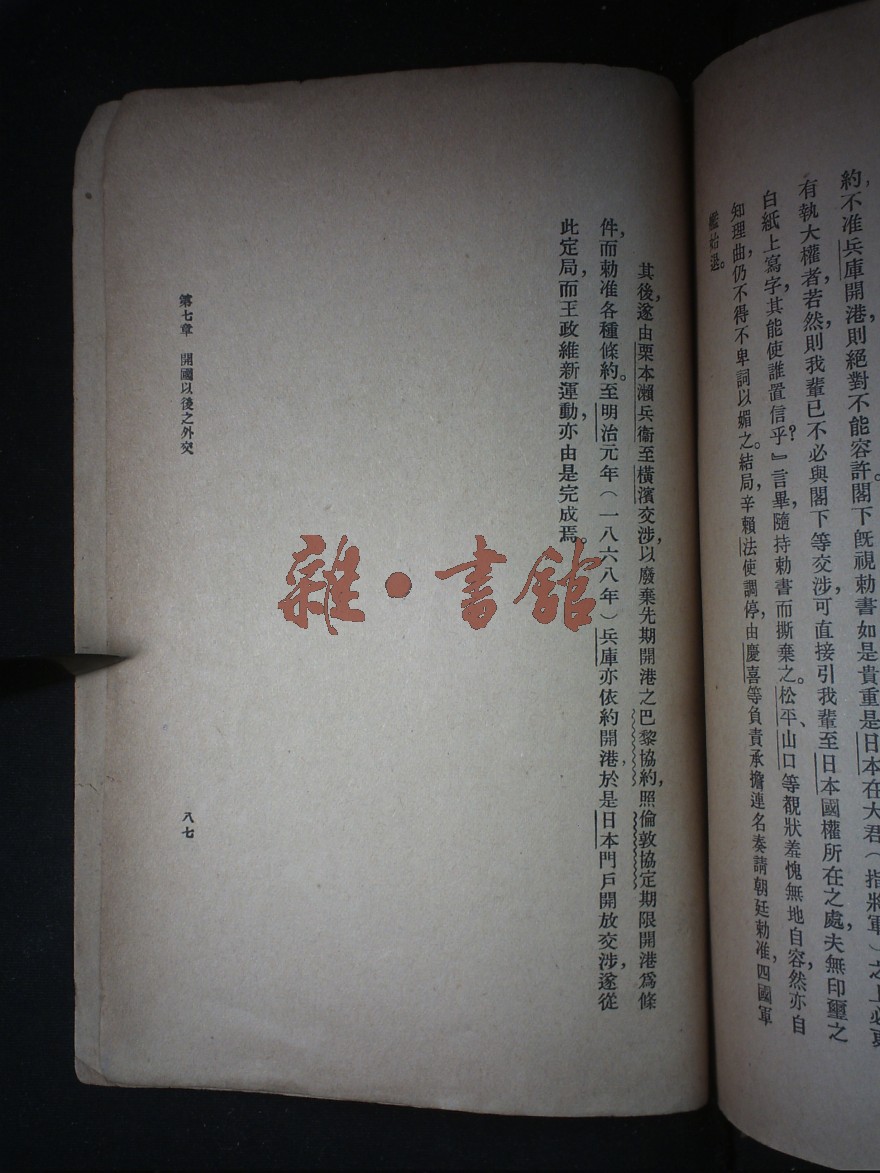 約,不准兵庫開港,則絕對不能容許。閣下旣視勅書如是貴重,是日本在大君(指將軍)之上,必更
有執大權者。若然,則我輩已不必與閣下等交涉,可直接引我輩至日本國權所在之處。夫無印璽之
白紙上寫字,其能使誰置信乎?』言畢,隨持勅書而撕棄之。松平、山口等覩狀,羞愧無地自容,然亦自
知理曲,仍不得不卑詞以媚之。結局,幸賴法使調停,由慶喜等負責承擔連名奏請朝廷勅准,四國軍
艦始退。
其後,遂由栗本瀨兵衞至橫濱交涉,以廢棄先期開港之巴黎協約,照倫敦協定期限開港爲條
件,而勅准各種條約。至明治元年(一八六八年)兵庫亦依約開港,於是日本門戶開放交涉,遂從
此定局,而王政維新運動,亦由是完成焉。
第七章 開國以後之外交
八七
雜·書館